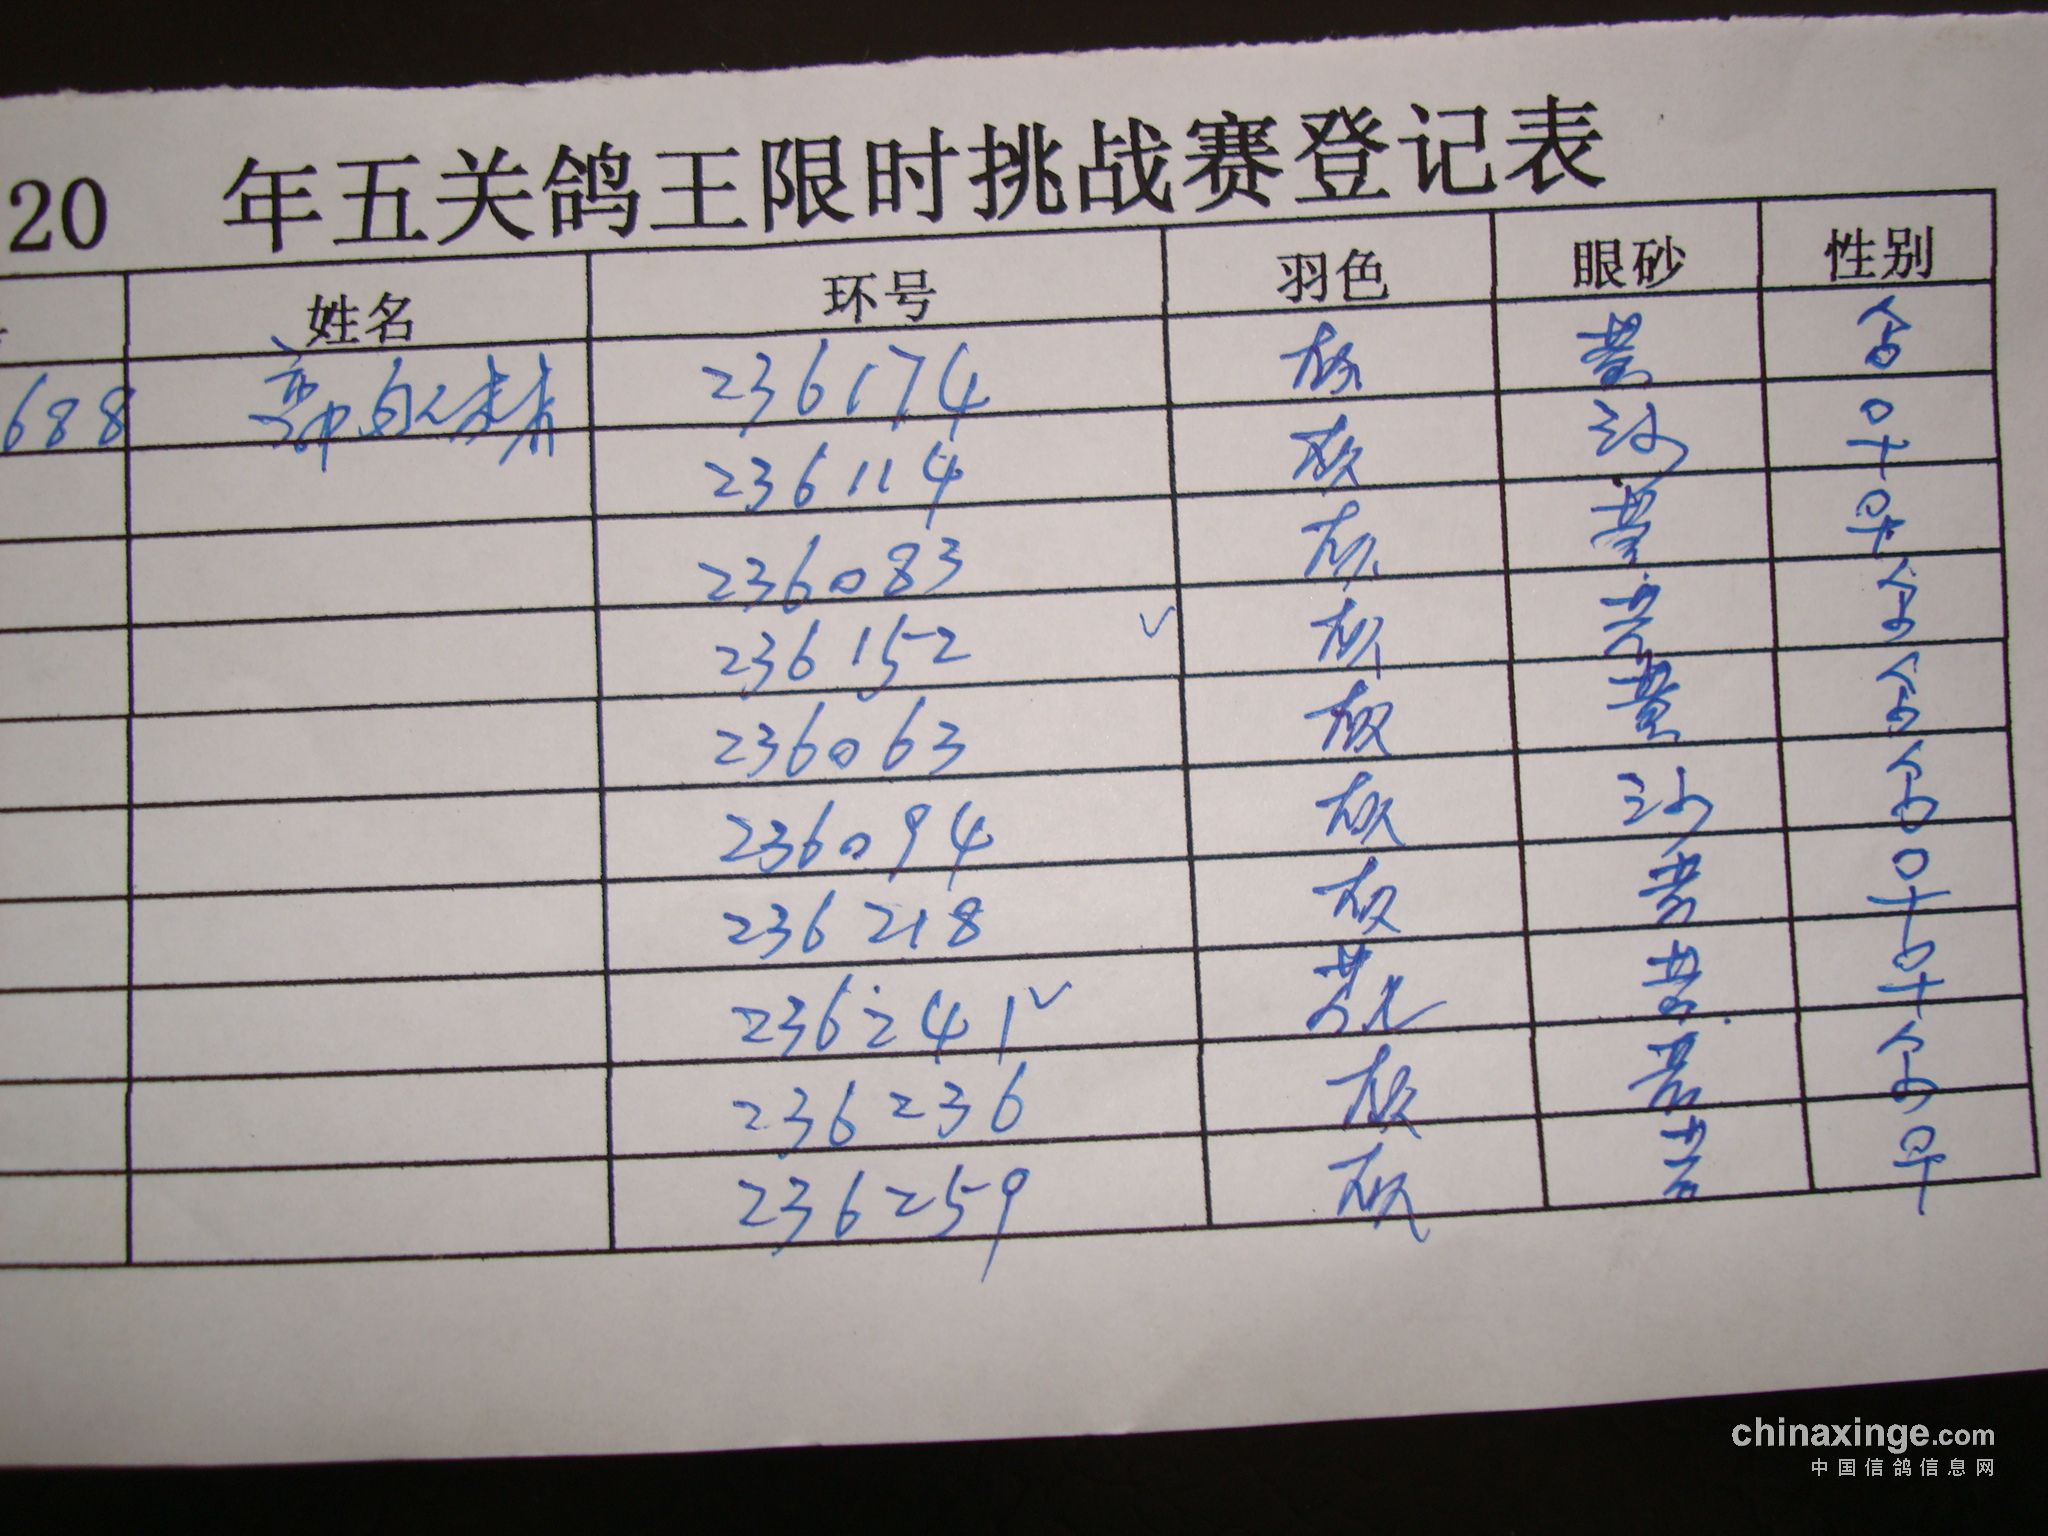 20 年五关鸽王限时挑战赛登记表
姓名 环号 羽色 眼砂 性别
688 236174 灰 黄 ♂
236114 灰 沙 ♀
236083 灰 黄 ♀
236152 ✓ 灰 黄 ♂
236063 灰 黄 ♂
236094 灰 沙 ♂
236218 灰 黄 ♀
236241 ✓ 花 黄 ♀
236236 灰 黄 ♂
236259 灰 黄 ♀
chinaxinge.com
中国信鸽信息网